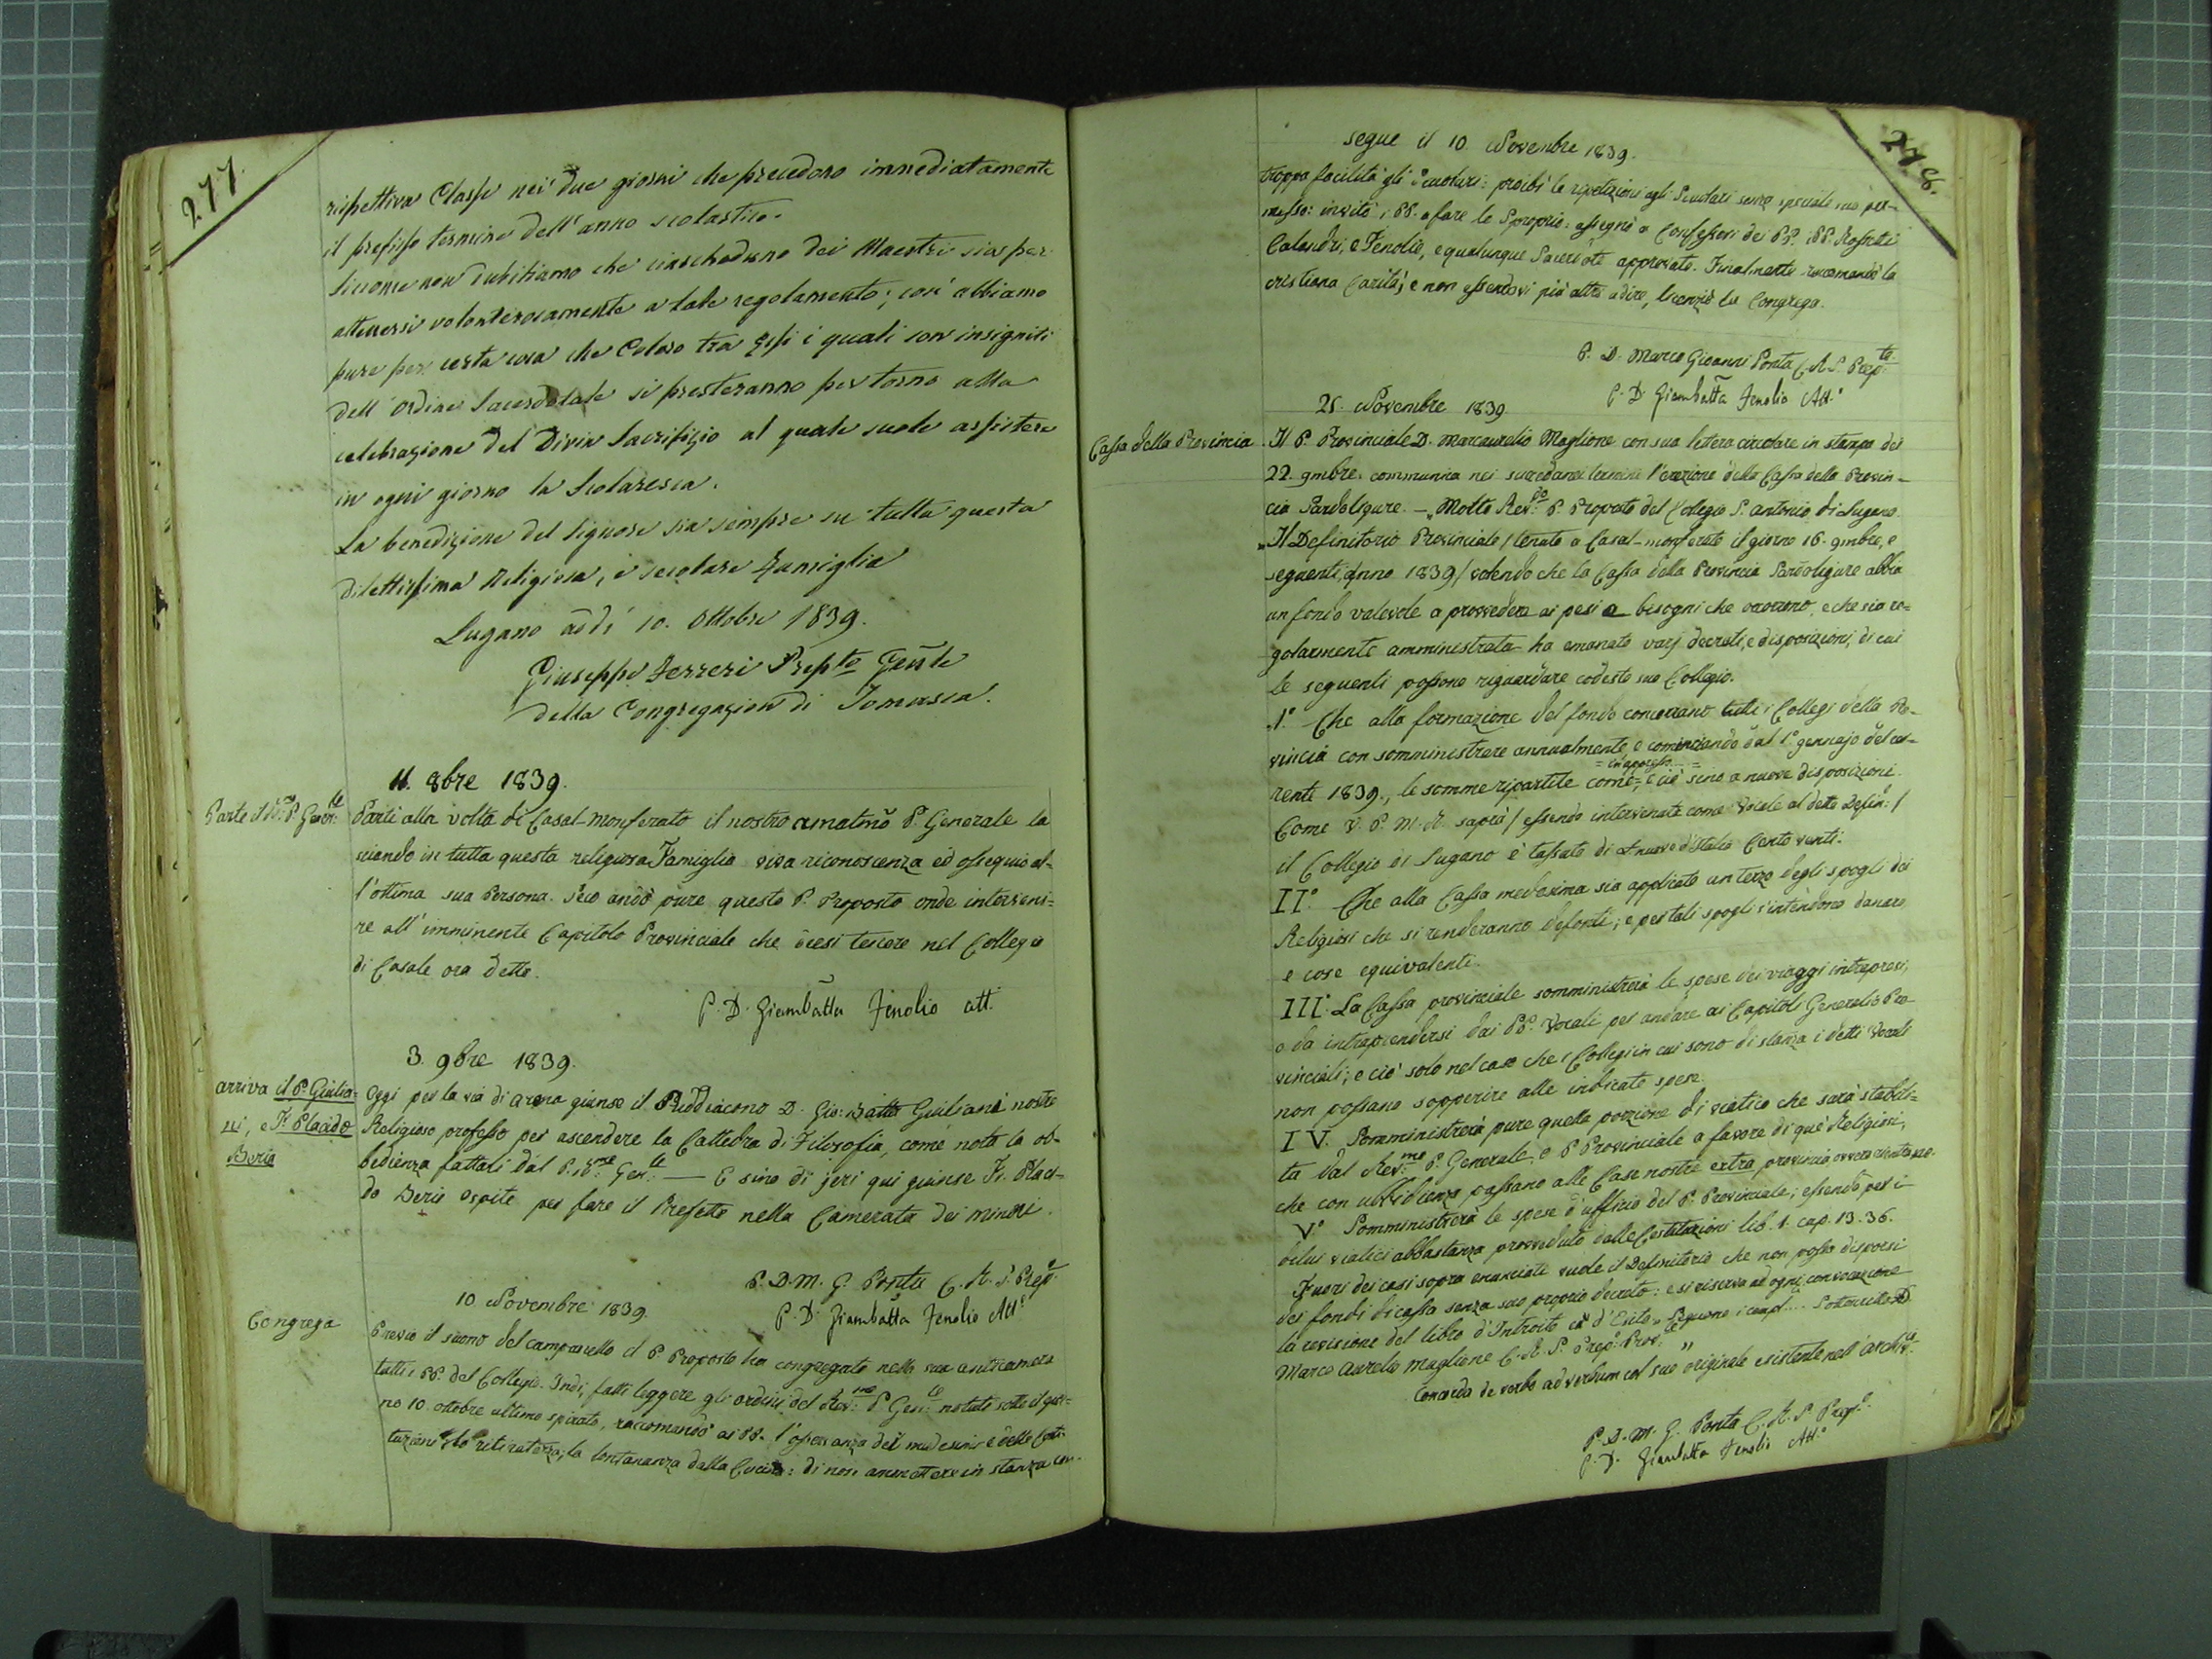 277.
rispettiva Classe nei due giorni che precedono immediatamente
il prefisso termine dell'anno scolastico.
Siccome non dubitiamo che ciascheduno dei Maestri sia per
attenersi volonterosamente a tale regolamento; così abbiamo
pure per certa cosa che Coloro tra Essi i quali son insigniti
dell'Ordine Sacerdotale si presteranno per torno alla
celebrazione del Divin Sacrifizio al quale suole assistere
in ogni giorno la Scolaresca.
La benedizione del Signore sia sempre su tutta questa
dilettissima Religiosa, e secolare Famiglia
Lugano addì 10. Ottobre 1839.
Giuseppe Ferreri Prepto Genle
della Congregazion di Somasca.
11. 8bre 1839.
Parte il Rmo P. Gener:le
Partì alla volta di Casal-Monferato il nostro amatmo P. Generale la
sciando in tutta questa religiosa Famiglia viva riconoscenza ed ossequio al-
l'ottima sua Persona. Seco andò pure questo P. Proposto onde interveni=
re all'imminente Capitolo Provinciale che deesi tenere nel Collegio
di Casale ora detto.
P. D. Giambatta Fenolio att.
3. 9bre 1839.
arriva il P. Giulia=
ni, e Fr. Placido
Beria
Oggi per la via di Arona giunse il Suddiacono D. Gio: Batta Giuliani nostro
Religioso professo per ascendere la Cattedra di Filosofia, come nota la ob-
bedienza fattali dal P. Rmo Gen:le — E sino di jeri qui giunse Fr. Placi-
do Beria Ospite per fare il Prefetto nella Camerata dei minori.
P. D. M. G. Ponta C. R. S. Prepo.
P. D. Giambatta Fenolio Atto
10 Novembre 1839.
Congrega
Previo il suono del campanello il P. Proposto ha congregato nella sua anticamera
tutti i PP. del Collegio. Indi, fatti leggere gli ordini del Rev:mo P. Gen:le notati sotto il gior=
no 10 ottobre ultimo spirato, raccomandò ai PP. l'osservanza dei medesimi e delle Costi
tuzioni, la ritiratezza; la lontananza dalla Cucina: di non ammettere in stanza con
278.
segue il 10 Novembre 1839.
troppa facilità gli Scuolari: proibì le ripetizioni agli Scuolari senza speciale suo per-
messo: invitò i PP. a fare lo Sproprio: assegnò a Confessori dei PP. i PP. Rossetti
Calandri, e Fenolio, e qualunque Sacerdote approvato. Finalmente raccomandò la
cristiana Carità; e non essendovi più altro a dire, licenziò la Congrega.
P. D. Marco Giovanni Ponta C. R. S. Prep:to
P. D. Giambatta Fenolio Att.o
25. Novembre 1839.
Cassa della Provincia
Il P. Provinciale D. Marcaurelio Maglione con sua lettera circolare in stampa dei
22. 9mbre communica nei succedanei termini l'erezione della Cassa della Provin-
cia Sardoligure. — „ Molto Rev:do P. Proposto del Collegio S. Antonio di Lugano.
„ Il Definitorio Provinciale / tenuto a Casal-monferato il giorno 16. 9mbre, e
seguenti, anno 1839 / volendo che la Cassa della Provincia Sardoligure abbia
un fondo valevole a provvedere ai pesi e bisogni che occorrono, e che sia re=
golarmente amministrata ha emanato varj decreti, e disposizioni, di cui
le seguenti possono riguardare codesto suo Collegio.
1.° Che alla formazione del fondo concorrano tutti i Collegi della Pro-
vincia con somministrare annualmente, e cominciando dal 1.° gennajo del cor-
rente 1839., le somme ripartite come = in appresso = e ciò sino a nuove disposizioni.
Come V. P. M. R. saprà / essendo intervenuto come Vocale al detto Defin: /
il Collegio di Lugano è tassato di nuove d'Italia Cento venti.
II.° Che alla Cassa medesima sia applicato un terzo degli spogli dei
Religiosi che si renderanno defonti; e per tali spogli s'intendono danaro
e cose equivalenti.
III.° La Cassa provinciale somministrerà le spese dei viaggi intrapresi,
o da intraprendersi dai PP. Vocali per andare ai Capitoli Generali, e Pro-
vinciali; e ciò solo nel caso che i Collegi in cui sono di stanza i detti Vocali
non possano sopperire alle indicate spese.
IV. Somministrerà pure quella porzione di viatico che sarà stabili=
ta dal Rev:mo P. Generale, e P. Provinciale a favore di què Religiosi,
che con ubbidienza passano alle Case nostre extra provincia, ovvero
V.° Somministrerà le spese d'ufficio del P. Provinciale; essendo per i
di lui viatici abbastanza provveduto dalle Costituzioni lib. 1. cap. 13. 36.
Fuori dei casi sopra enunciati vuole il Definitorio che non possa disporsi
dei fondi di cassa senza suo proprio decreto: e si riserva ad ogni convocazione
la revisione del libro d'Introito ed d'Esito „ Seguono i compl... Sottoscritto D.
Marco Aurelio Maglione C. R. S. Prepo Prov:le „
Concorda de verbo ad verbum col suo originale esistente nell'archivo.
P. D. M. G. Ponta C. R. S. Prepo.
P. D. Giambatta Fenolio Att.o